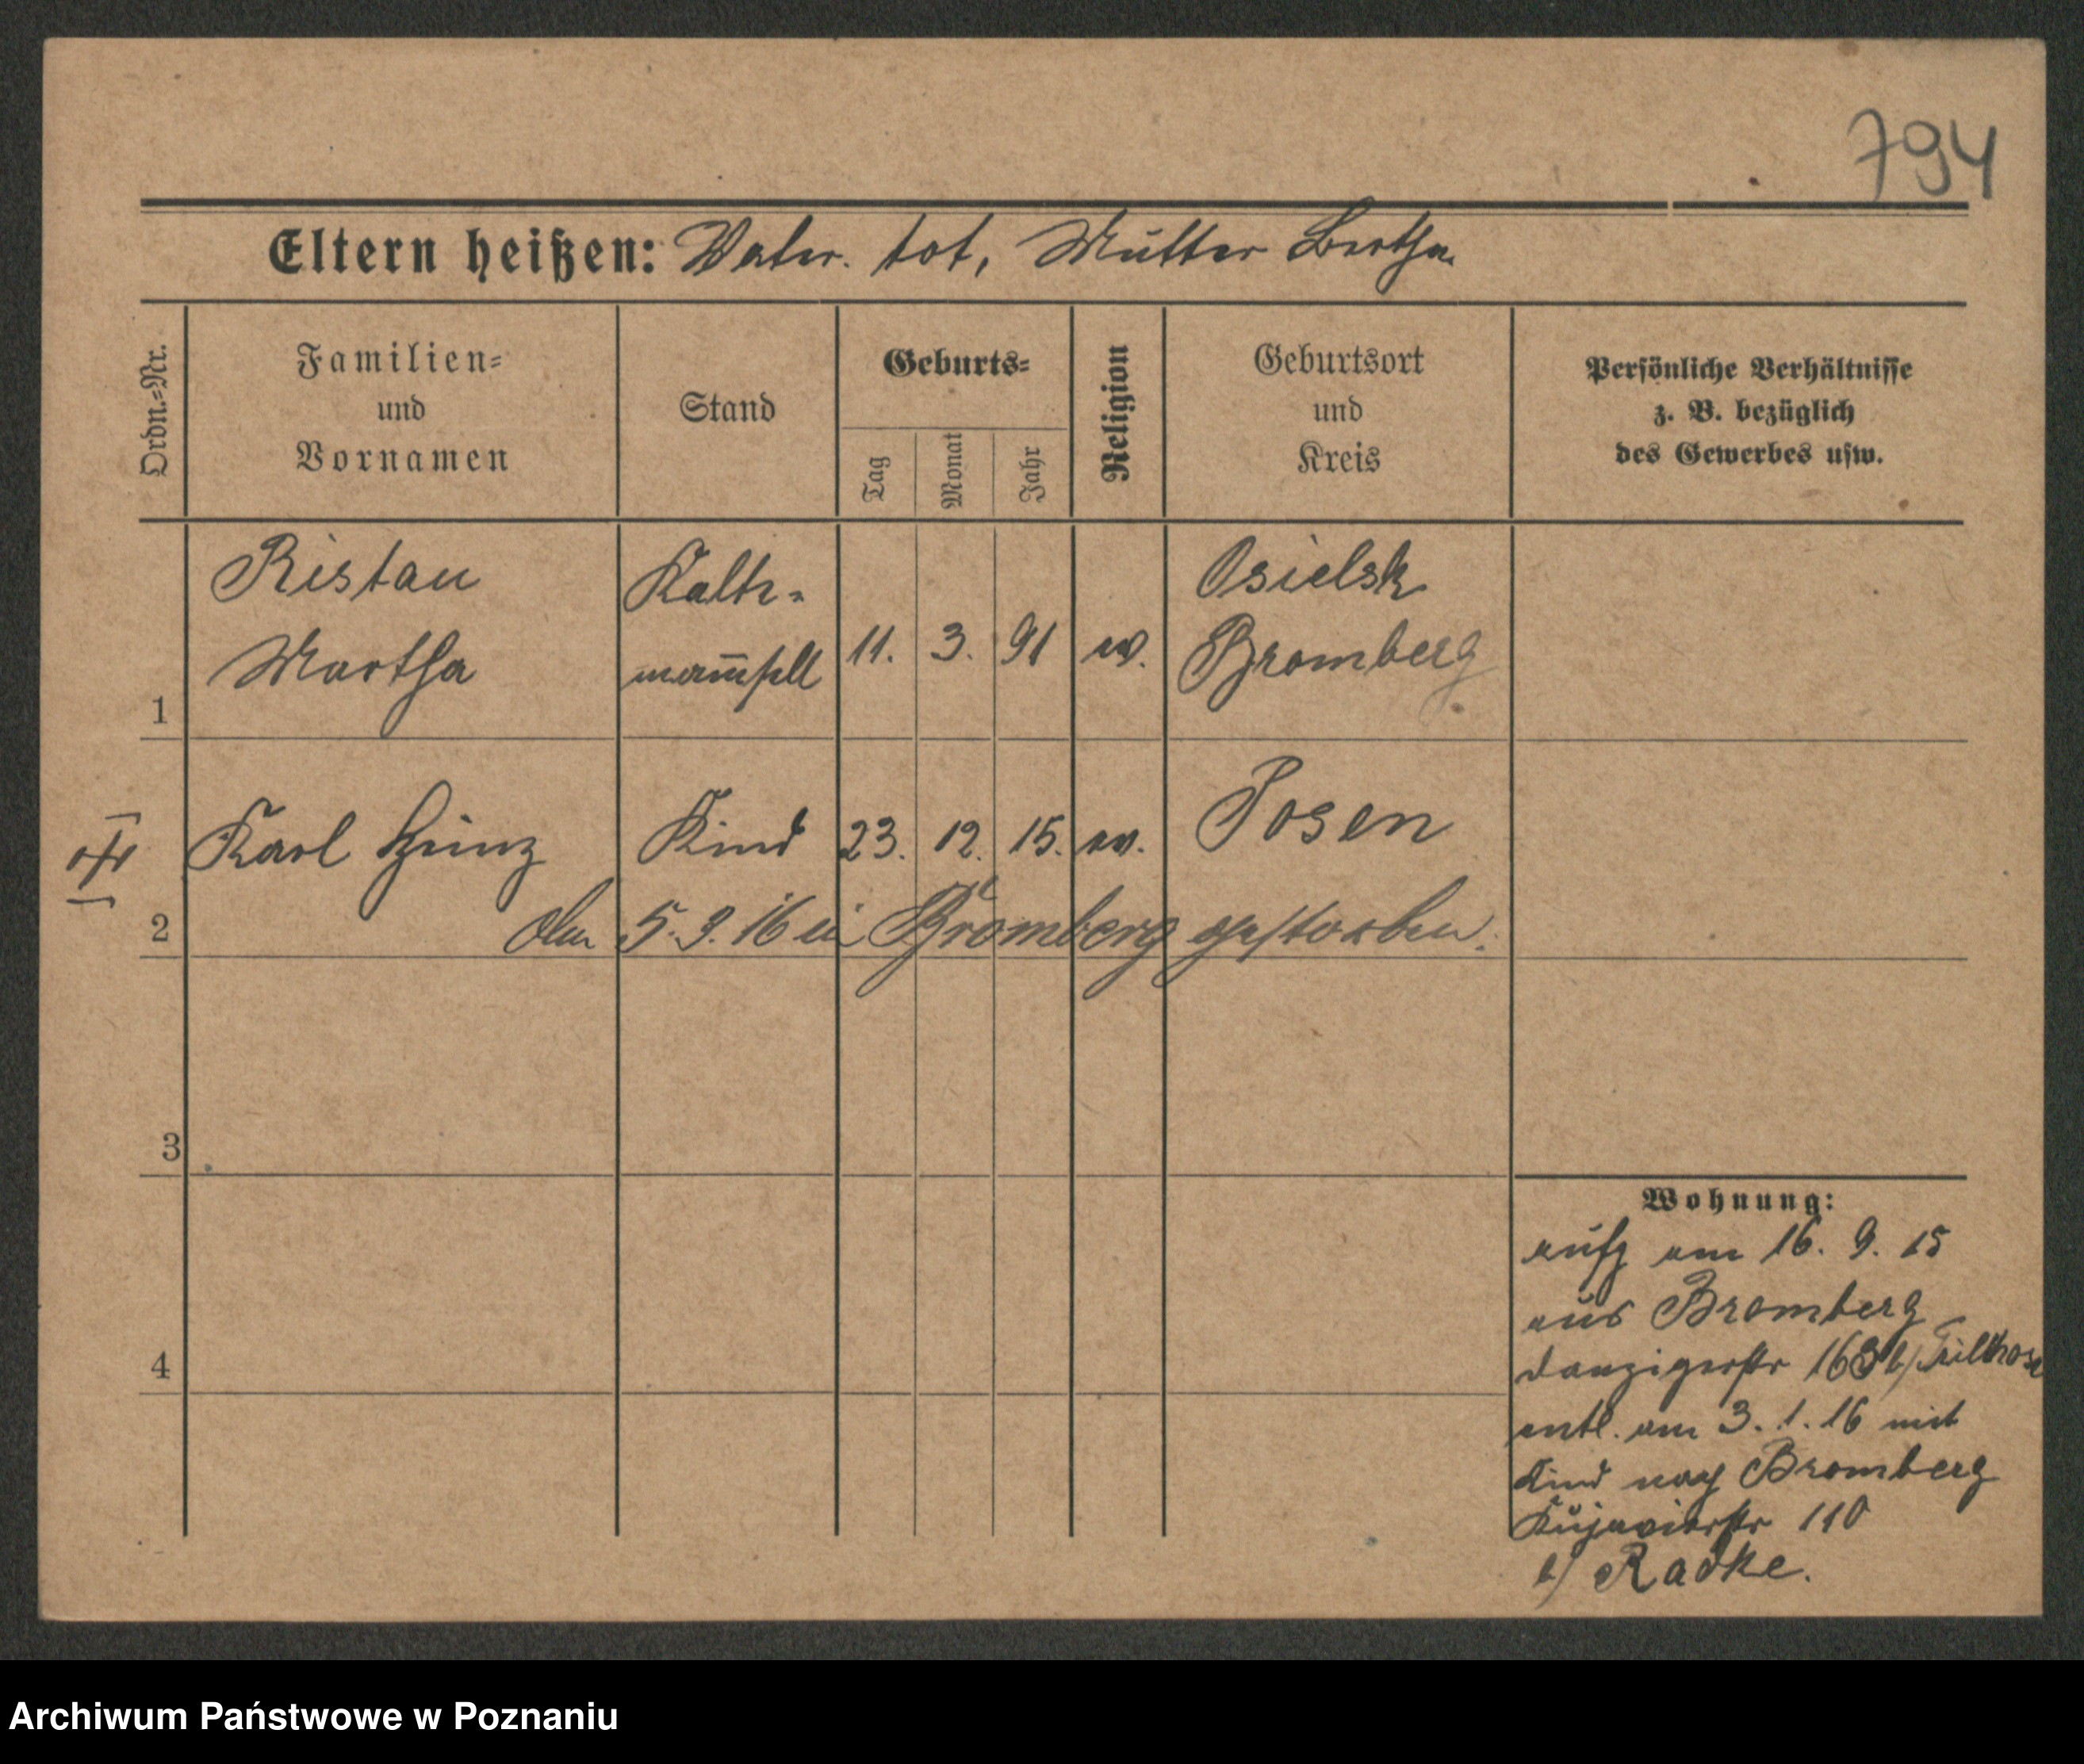 794
Eltern heißen: Vater tot, Mutter Bertha
Ordn.=Nr.
Familien=
und
Vornamen
Stand
Geburts=
Tag
Monat
Jahr
Religion
Geburtsort
und
Kreis
Persönliche Verhältnisse
z. B. bezüglich
des Gewerbes usw.
1
Ristau
Martha
Kalte-
mamsell
11. 3. 91
ev.
Osielsk
Bromberg
2
Karl Heinz
Kind
23. 12. 15.
ev.
Posen
den 5. 3. 16 in Bromberg gestorben.
3
4
Wohnung:
aufg am 16. 9. 15
aus Bromberg
Danzigerstr b/
entl. am 3. 1. 16 mit
Kind nach Bromberg
Kujavierstr 110
b/ Radke.
Archiwum Państwowe w Poznaniu